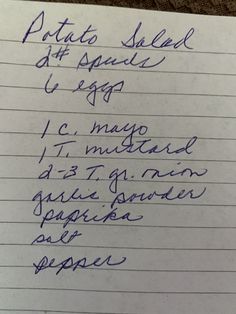 Potato Salad
2# spuds
6 eggs
1 c. mayo
1 T. mustard
2-3 T. gr. onion
garlic powder
paprika
salt
pepper